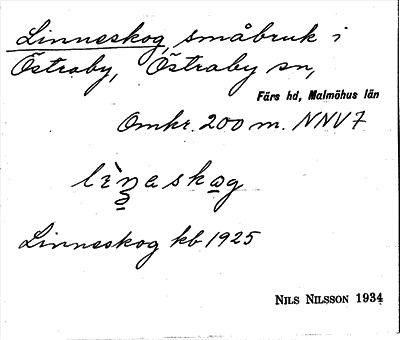 Linneskog, småbruk i
Östraby, Östraby sn,
Färs hd, Malmöhus län
Omkr. 200 m. NNV 7
Linneskog kb 1925
NILS NILSSON 1934